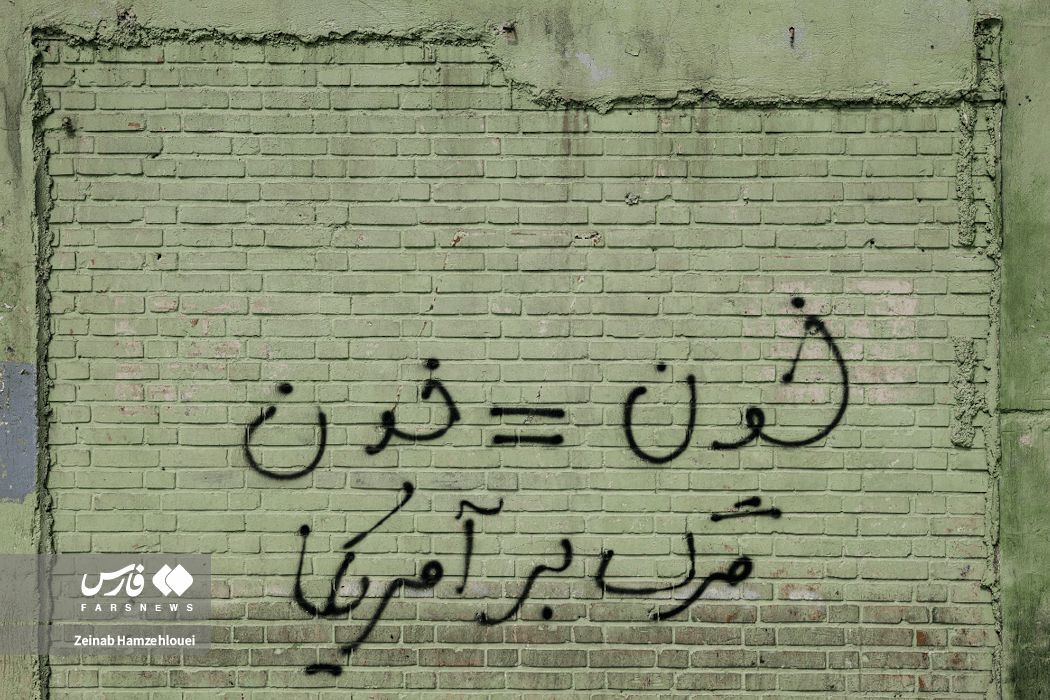 خون = خون
مرگ بر آمریکا
فارس
FARSNEWS
Zeinab Hamzehlouei